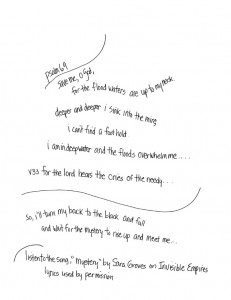 psalm 69
save me, O God,
for the flood waters are up to my neck.
deeper and deeper i sink into the mire
i can't find a foot hold.
i am in deep water and the floods overwhelm me....
v33 for the lord hears the cries of the needy...
so, i'll turn my back to the black and fall
and wait for the mystery to rise up and meet me...
listen to the song, "mystery" by Sara Groves on Invisible Empires
lyrics used by permission